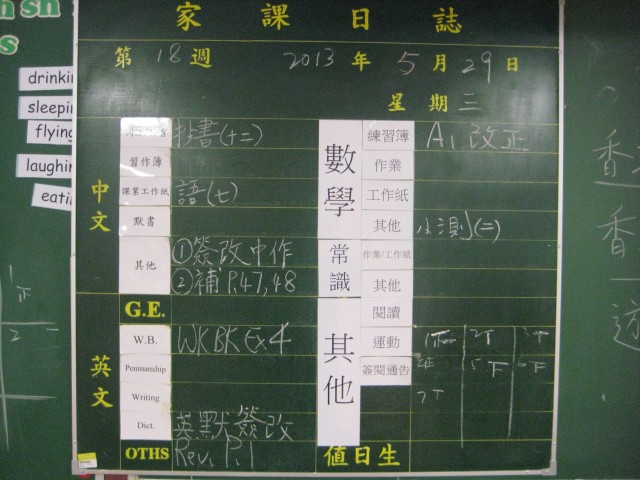 sh sh
s
drinki
sleepi
flying
laughin
eatin
家課日誌
第18週 2013年5月29日
星期三
中文
抄書(十二)
習作簿
課業工作紙 語(七)
默書
其他 ①簽改中作
②補P.47,48
英文
G.E.
W.B. WKBK Ex4
Penmanship
Writing
Dict. 英默簽改
OTHS Rev. P.1
數學
練習簿 A1 改正
作業
工作紙
其他 小測(二)
常識
作業/工作紙
其他
其他
閱讀
運動
簽閱通告
值日生
香
香
一